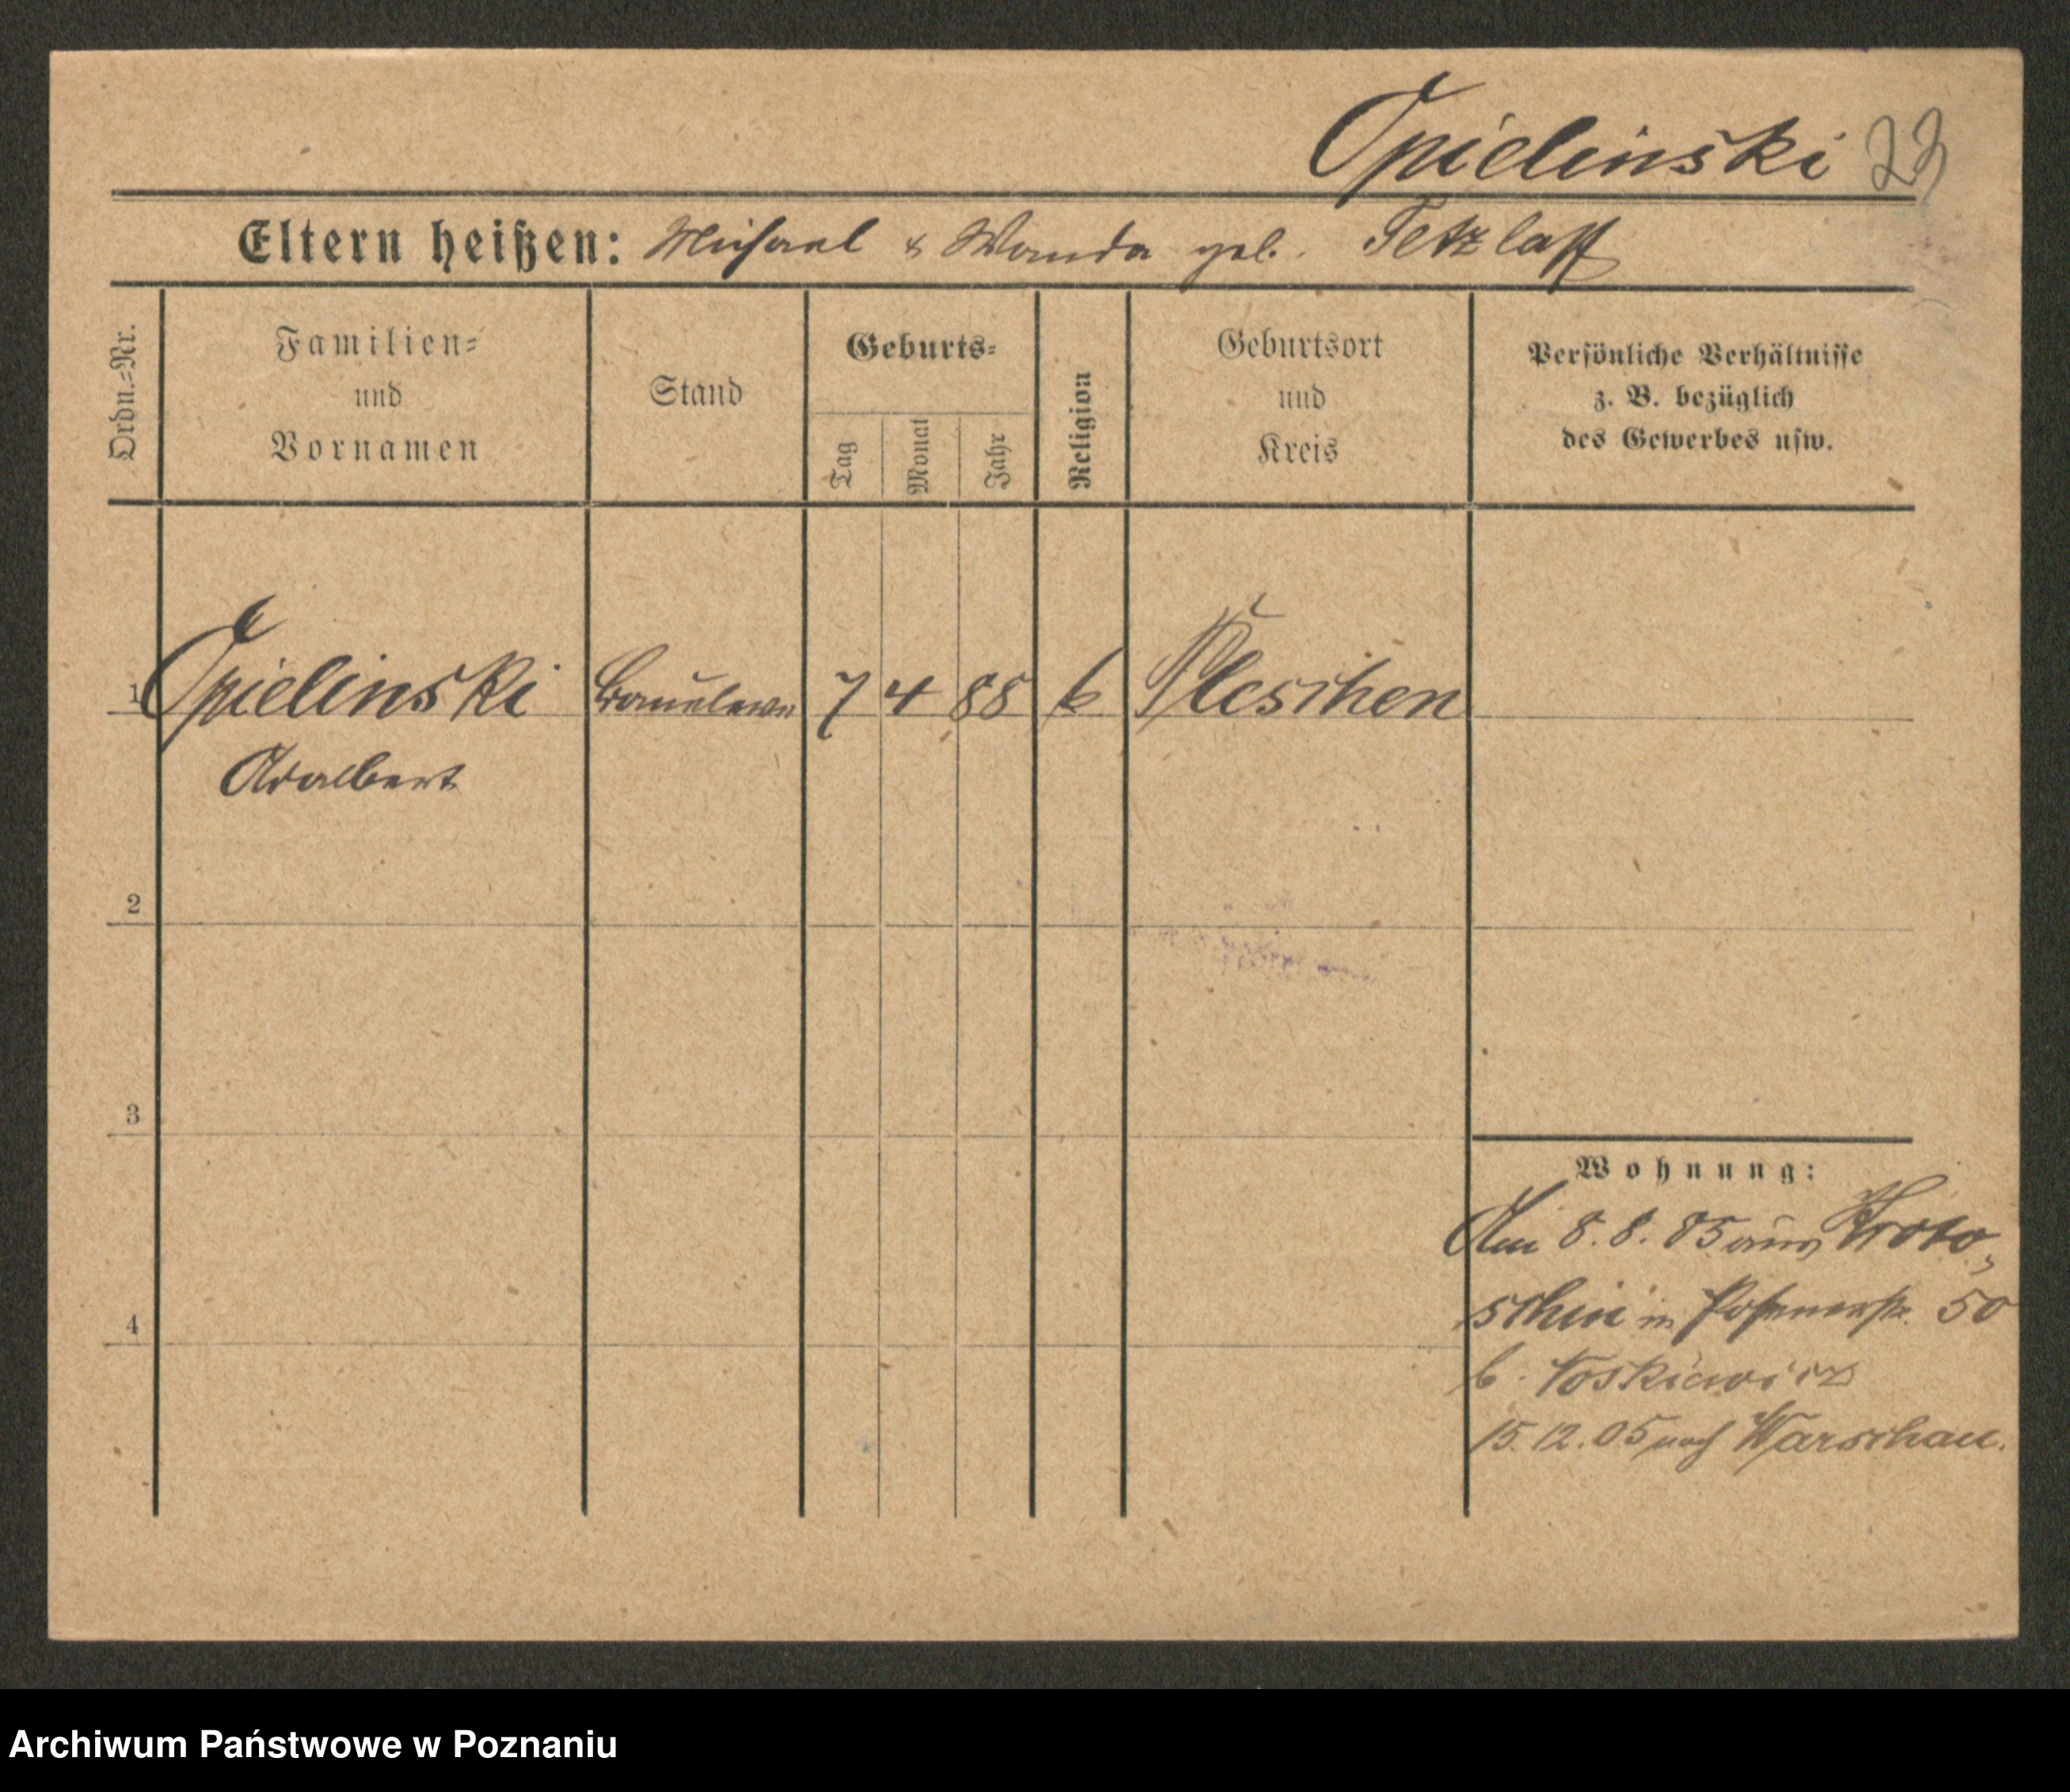 Opielinski 23
Eltern heißen: Michael & Wanda geb. Tetzlaff
Ordn.=Nr.
Familien=
und
Vornamen
Stand
Geburts=
Tag
Monat
Jahr
Religion
Geburtsort
und
Kreis
Persönliche Verhältnisse
z. B. bezüglich
des Gewerbes usw.
1 Opielinski 7 4 88 k Pleschen
Adalbert
2
3
4
Wohnung:
Am 8.8.05 aus Kroto-
schin in Posenerstr. 50
b. Toskiewicz
15.12.05 nach Warschau.
Archiwum Państwowe w Poznaniu